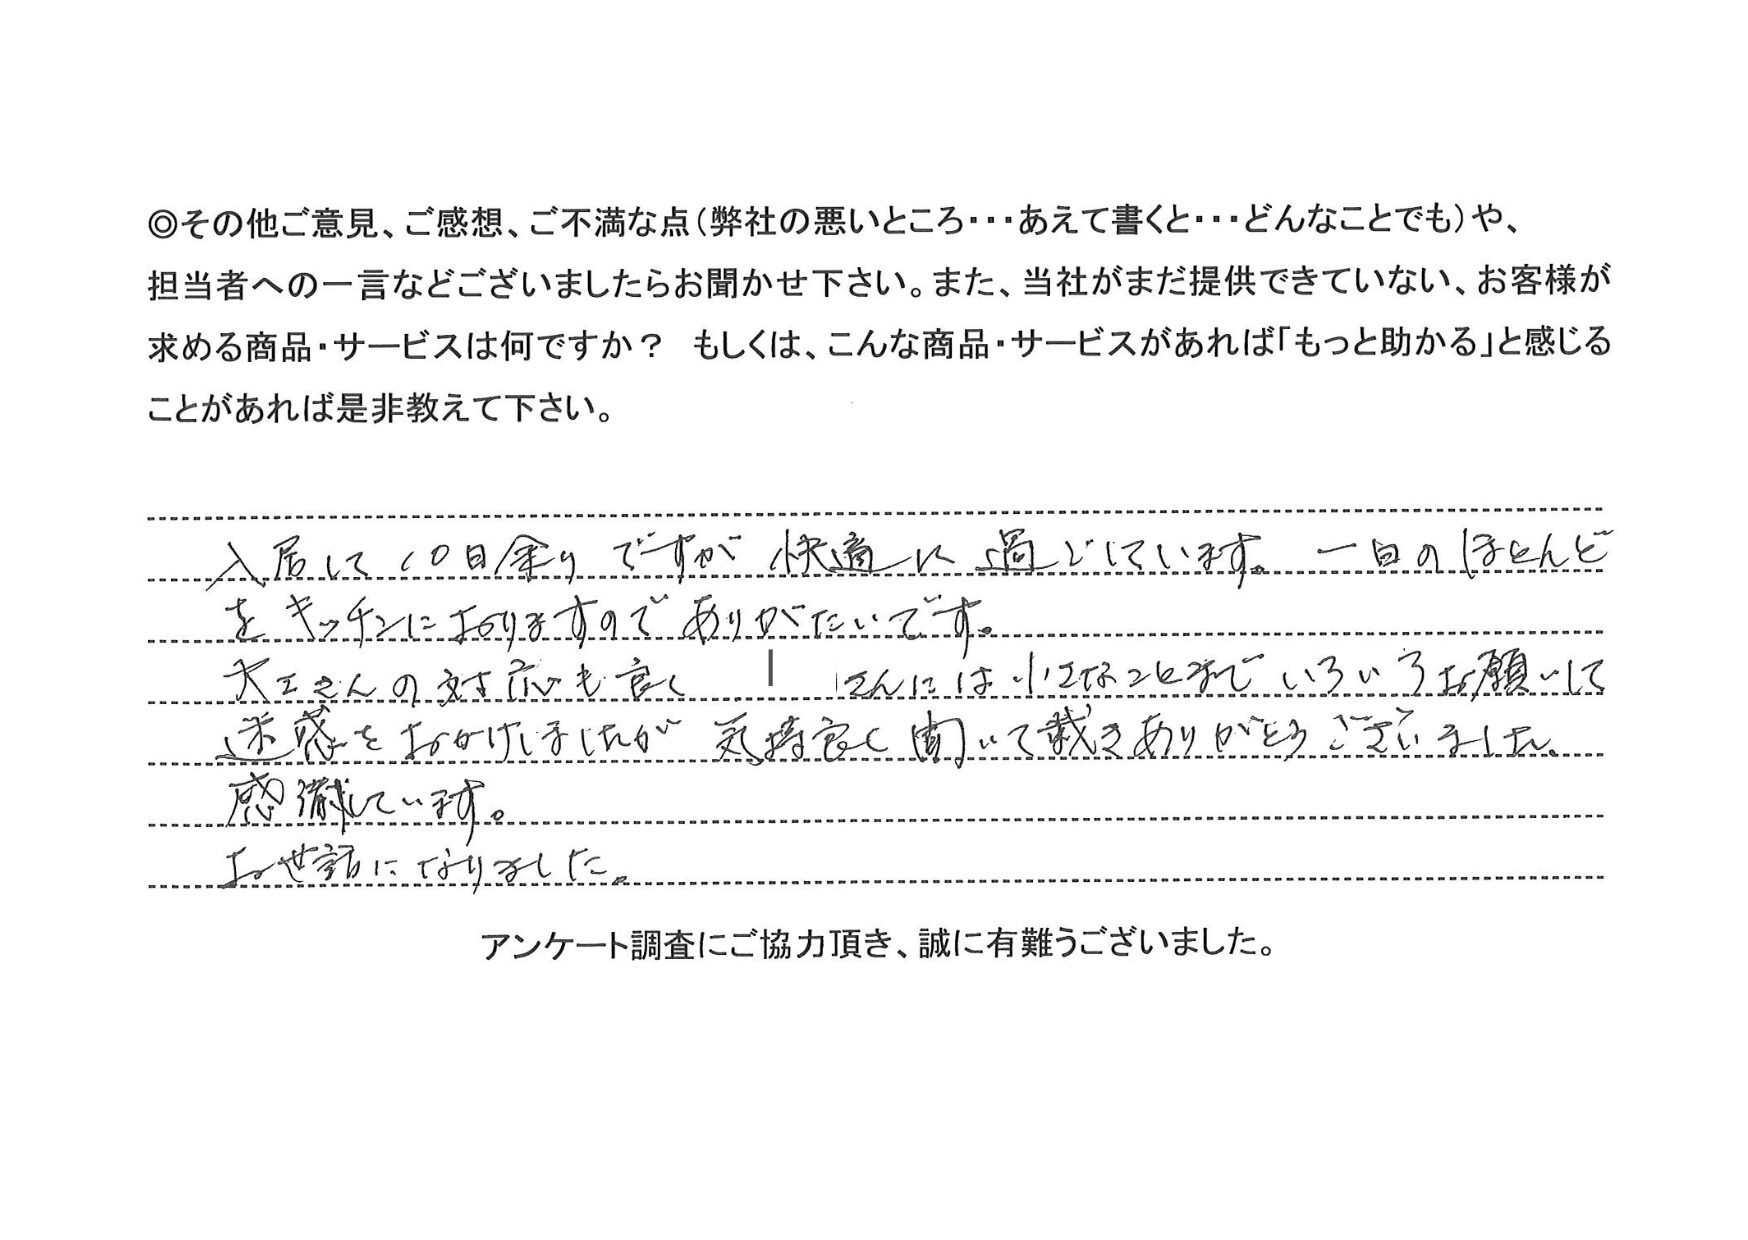 ◎その他ご意見、ご感想、ご不満な点(弊社の悪いところ・・・あえて書くと・・・どんなことでも)や、
担当者への一言などございましたらお聞かせ下さい。また、当社がまだ提供できていない、お客様が
求める商品・サービスは何ですか? もしくは、こんな商品・サービスがあれば「もっと助かる」と感じる
ことがあれば是非教えて下さい。
入居して10日余りですが快適に過ごしています。一日のほとんど
をキッチンにおりますのでありがたいです。
大工さんの対応も良く さんには小さなことまでいろいろお願いして
迷惑をおかけしましたが気持良く聞いて戴きありがとうございました。
感謝しています。
お世話になりました。
アンケート調査にご協力頂き、誠に有難うございました。